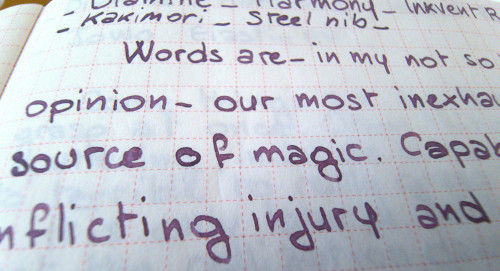 - Diamine - Harmony - Inkvent
- Kakimori - Steel nib -
Words are - in my not so
opinion - our most inexha
source of magic. Capab
nflicting injury and